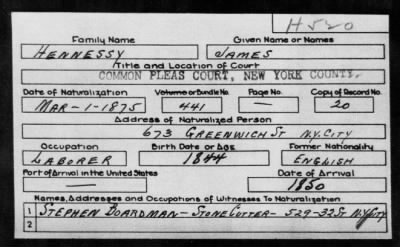 H520
Family Name Given Name or Names
HENNESSY JAMES
Title and Location of Court
COMMON PLEAS COURT, NEW YORK COUNTY.
Date of Naturalization Volume or Bundle No. Page No. Copy of Record No.
MAR-1-1875 441 — 20
Address of Naturalized Person
673 GREENWICH ST N.Y. CITY
Occupation Birth Date or Age Former Nationality
LABORER 1844 ENGLISH
Port of Arrival in the United States Date of Arrival
— 1850
Names, Addresses and Occupations of Witnesses To Naturalization
1 STEPHEN BOARDMAN - STONE CUTTER - 529-32 ST N.Y. CITY
2